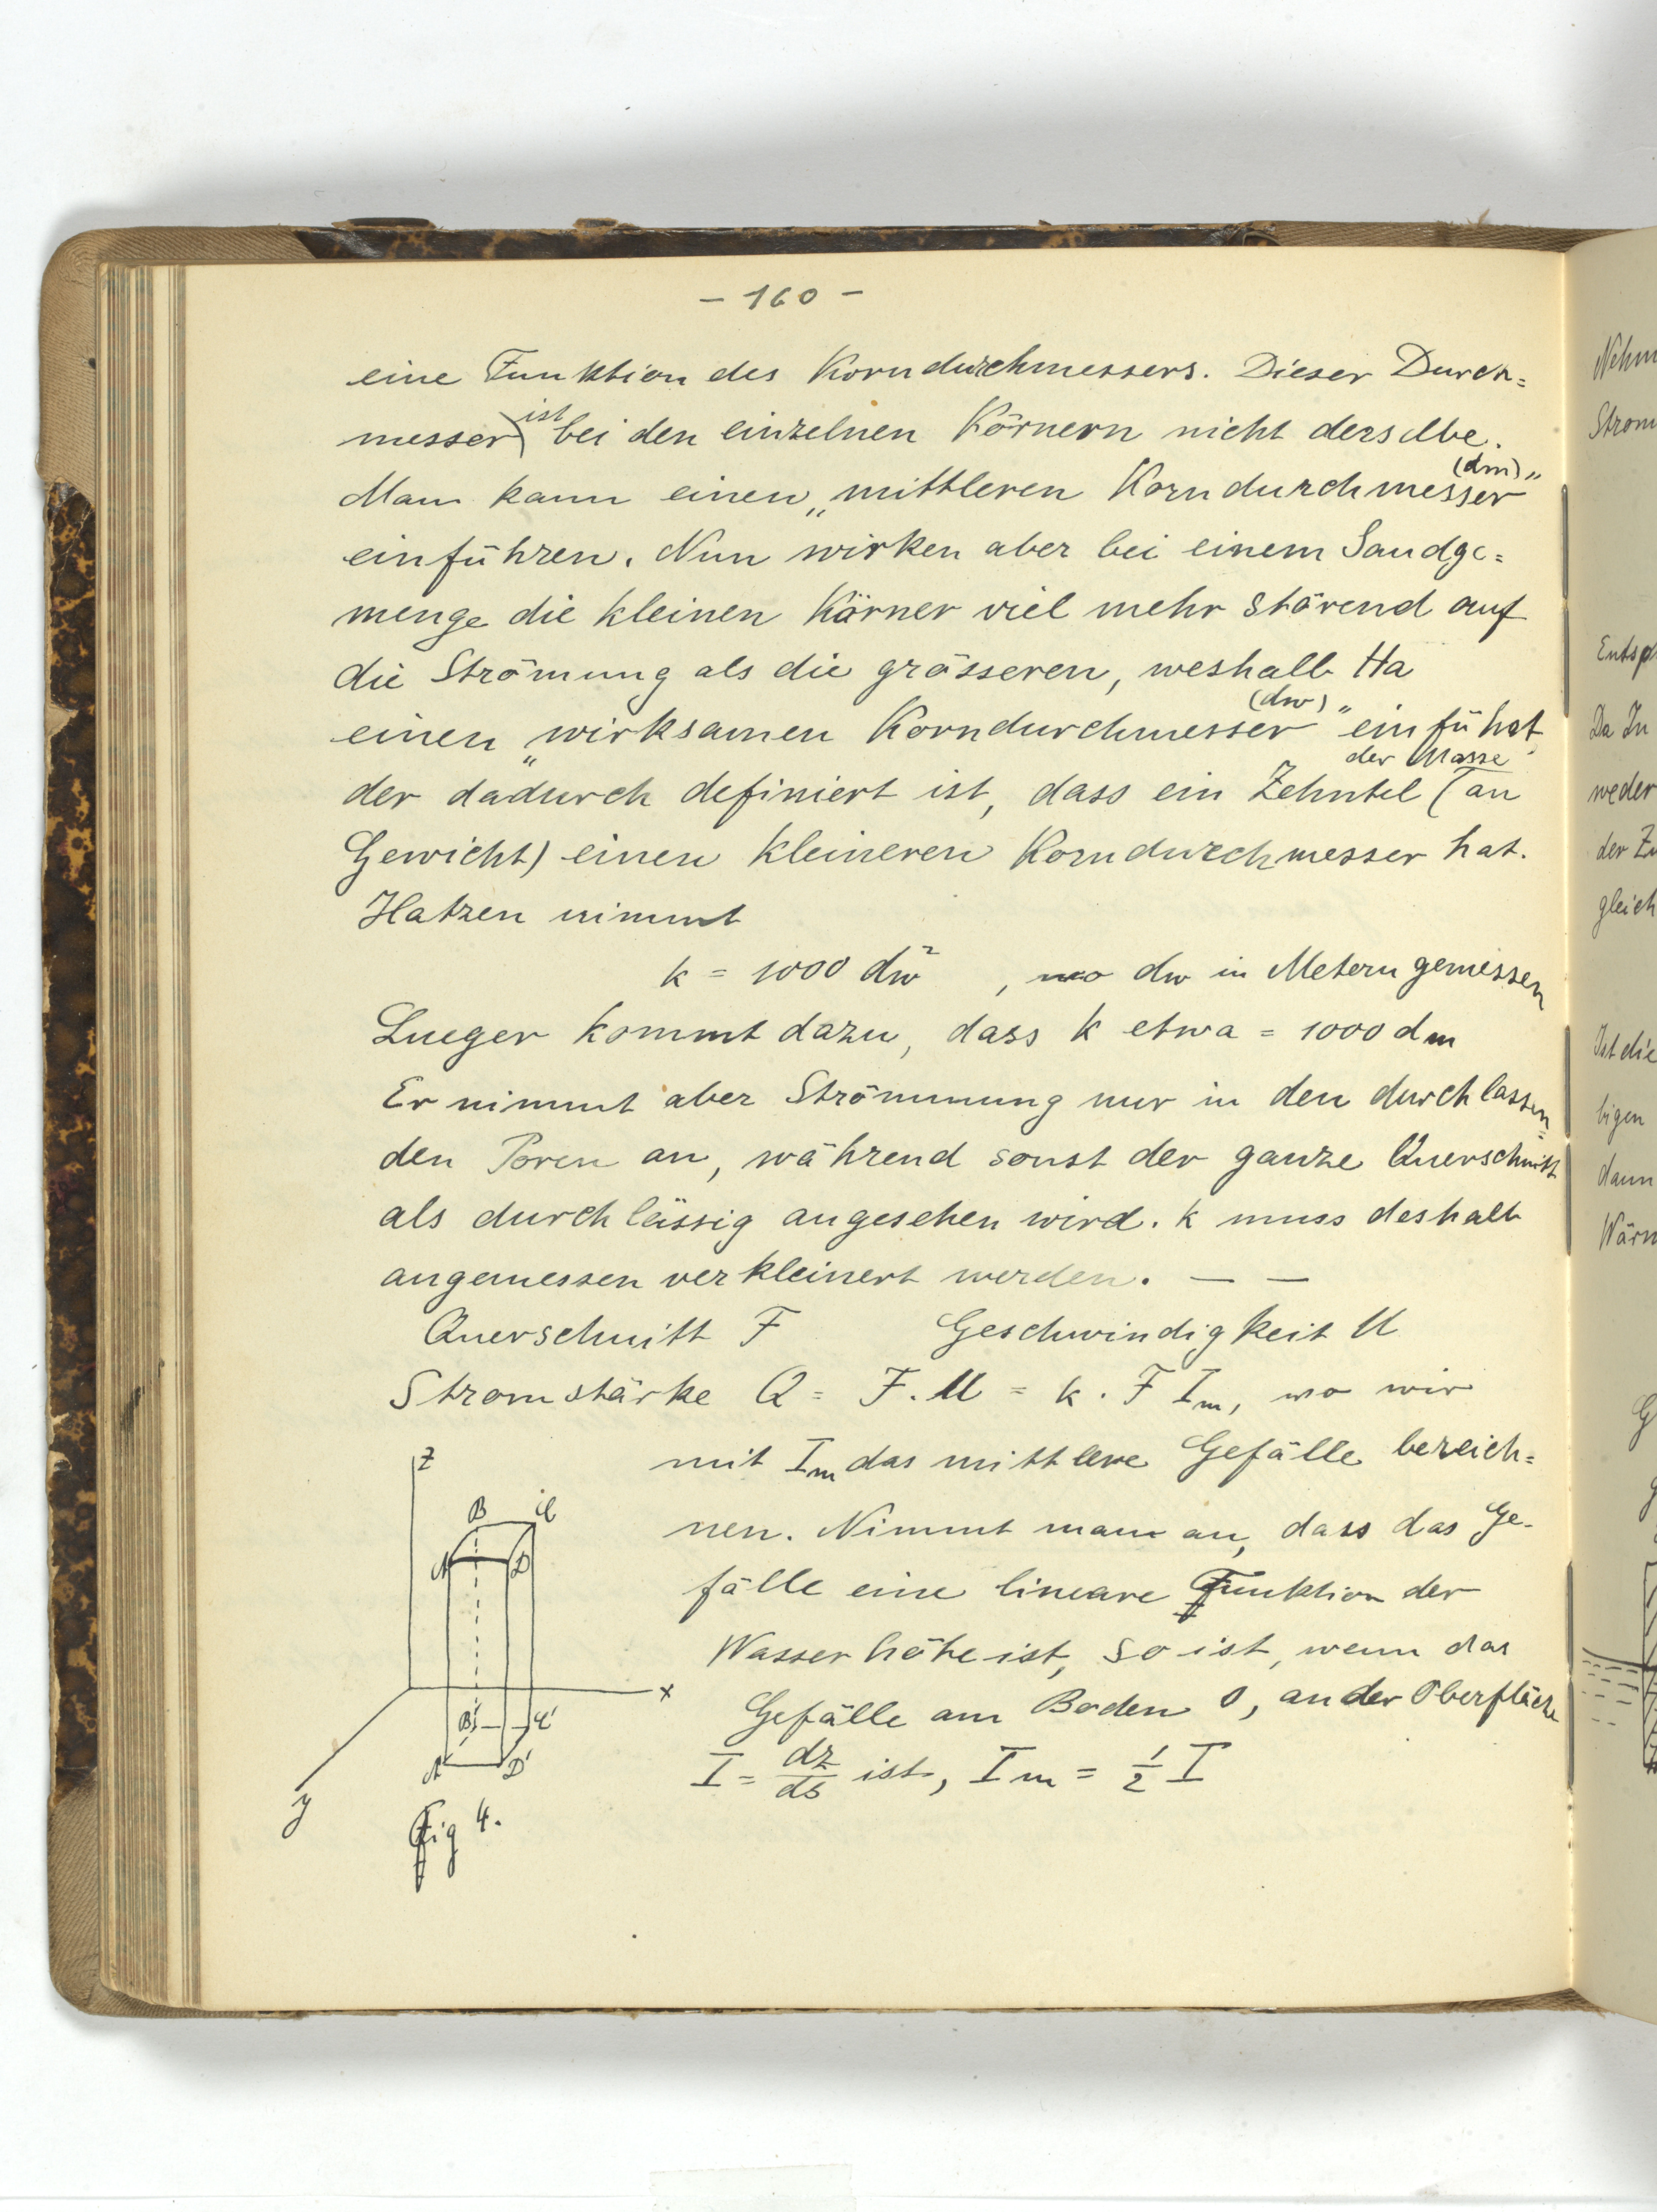 - 160 -
eine Funktion des Korndurchmessers. Dieser Durch=
messer ist bei den einzelnen Körnern nicht derselbe.
Man kann einen „mittleren Korndurchmesser (dm)"
einführen. Nun wirken aber bei einem Sandge=
menge die kleinen Körner viel mehr störend auf
die Strömung als die grösseren, weshalb Ha
einen „wirksamen Korndurchmesser (dw)" einfühat,
der dadurch definiert ist, dass ein Zehntel der Masse (an
Gewicht) einen kleineren Korndurchmesser hat.
Hatzen nimmt
k = 1000 dw², wo dw in Metern gemessen
Lueger kommt dazu, dass k etwa = 1000 dm
Er nimmt aber Strömmung nur in den durchlassen=
den Poren an, während sonst der ganze Querschnitt
als durchlässig angesehen wird. k muss deshalb
angemessen verkleinert werden. — —
Querschnitt F Geschwindigkeit U
Stromstärke Q = F. U = k. F Im, wo wir
mit Im das mittlere Gefälle bezeich=
nen. Nimmt man an, dass das Ge-
fälle eine lineare Funktion der
Wasserhöhe ist, so ist, wenn das
Gefälle am Boden 0, an der Oberfläche
I = dz/ds ist, Im = 1/2 I
z
B C
A D
x
B' C'
A' D'
y
Fig 4.
Nehm
Strom
Entsp
Da In
weder
der Zu
gleich
Ist die
bigen
dann
Wärm
G